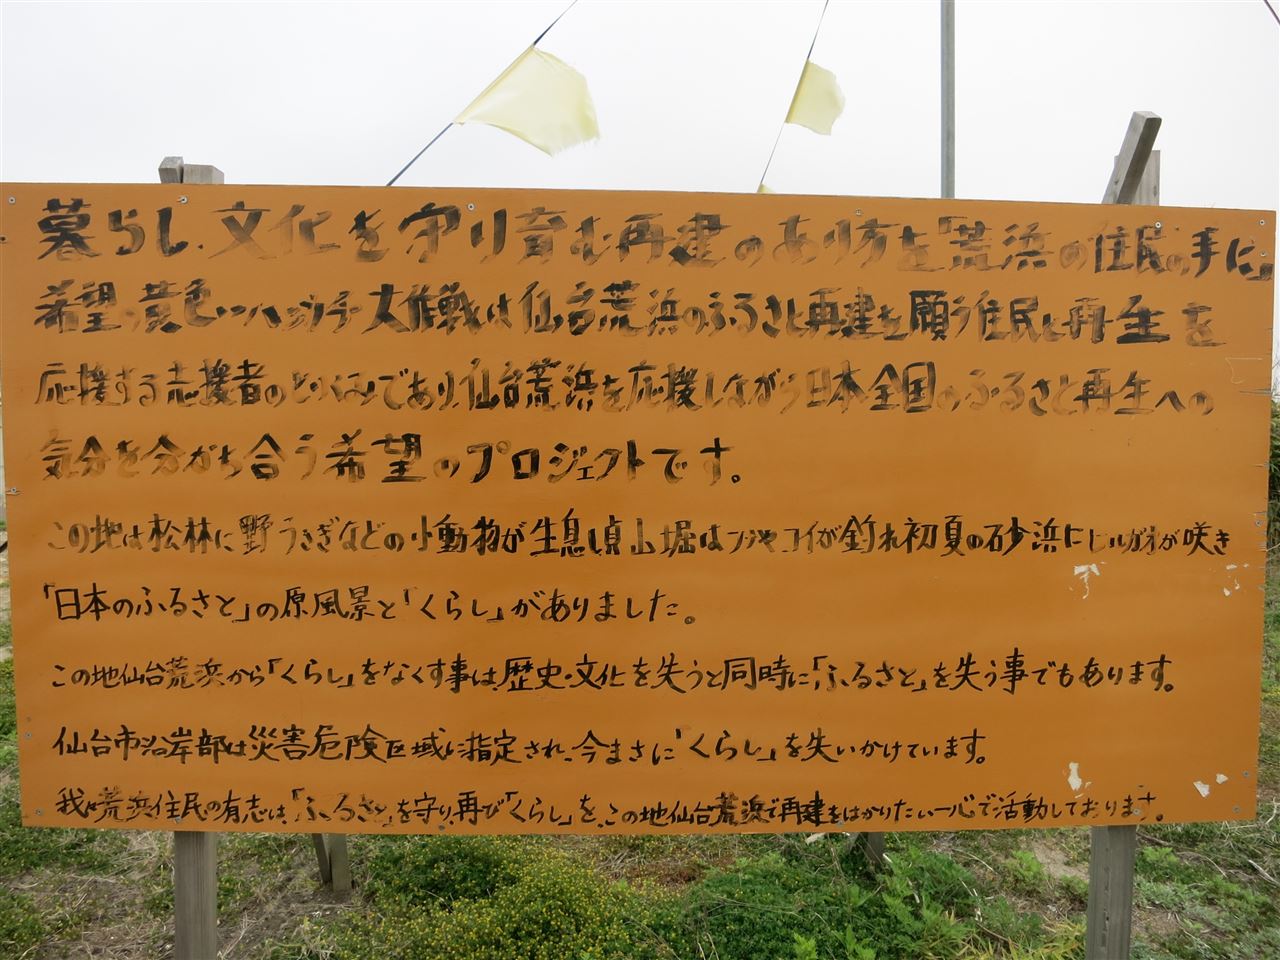 暮らし、文化を守り育む再建のあり方を「荒浜の住民の手に」
希望の黄色いハンカチ大作戦は仙台荒浜のふるさと再建を願う住民と再生を
応援する志援者のとりくみであり、仙台荒浜を応援しながら日本全国のふるさと再生への
気分を分かち合う希望のプロジェクトです。
この地は松林に野うさぎなどの小動物が生息し貞山堀はフナやコイが釣れ初夏の砂浜にヒルガオが咲き
「日本のふるさと」の原風景と「くらし」がありました。
この地仙台荒浜から「くらし」をなくす事は、歴史・文化を失うと同時に「ふるさと」を失う事でもあります。
仙台市沿岸部は災害危険区域に指定され、今まさに「くらし」を失いかけています。
我々荒浜住民の有志は、「ふるさと」を守り、再び「くらし」を、この地仙台荒浜で再建をはかりたい一心で活動しております。